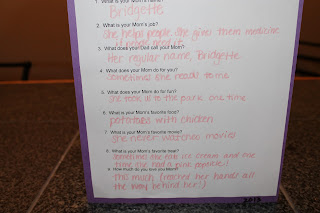 1. What is your Mom's name?
Bridgette
2. What is your Mom's job?
she helps people she gives them medicine
if people need it
3. What does your Dad call your Mom?
her regular name, Bridgette
4. What does your Mom do for you?
sometimes she reads to me
5. What does your Mom do for fun?
she took us to the park one time
6. What is your Mom's favorite food?
potatoes with chicken
7. What is your Mom's favorite movie?
she never watches movies
8. What is your Mom's favorite treat?
sometimes she eats ice cream and one
time she had a pink popsicle!!
9. How much do you love you Mom?
this much (reached her hands all
the way behind her!)